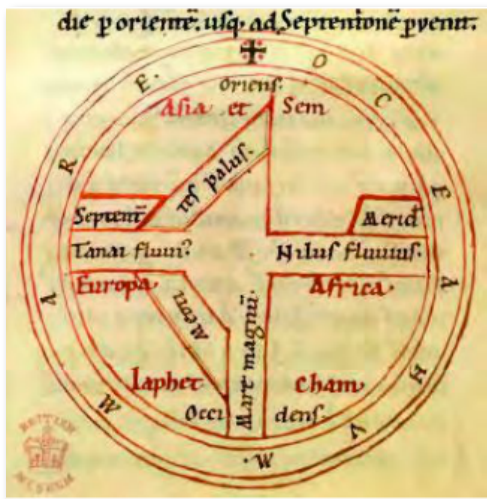 die p orientē. usq; ad Septentrionē pvenit.
MARE OCEANUM
Oriens.
Asia et Sem
palus.
Septent̄
Merid̄
Tanai fluui⁹
Nilus fluuius.
Europa
Africa
Meoti
Mare magnū.
Iaphet
Cham
Occi dens.
BRITISH
MUSEUM